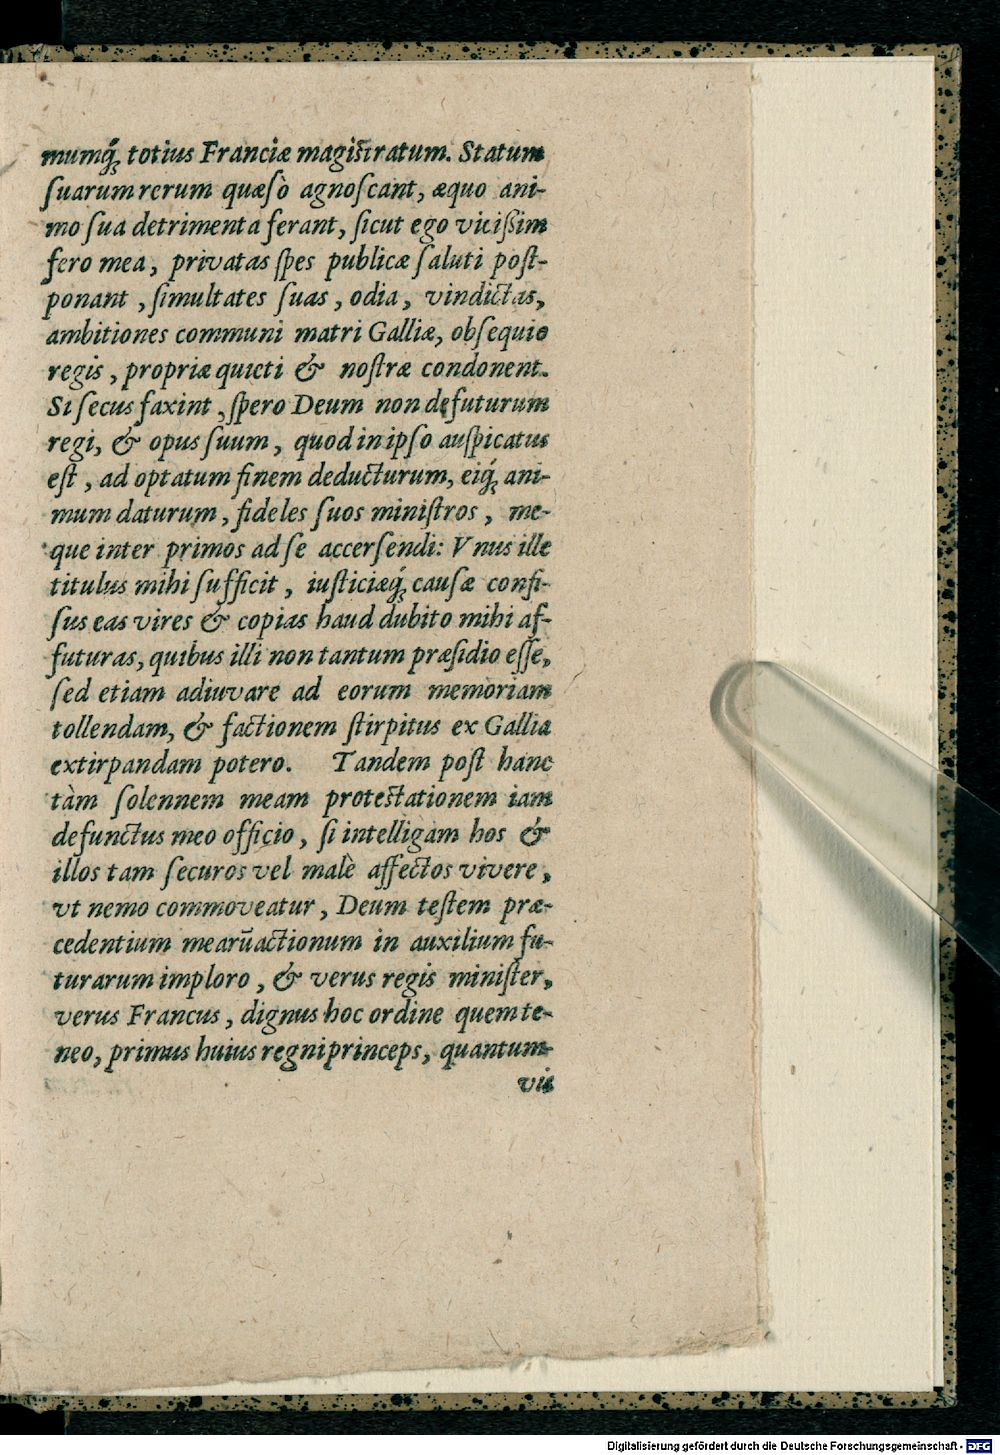 mumq́; totius Franciæ magistratum. Statum
ſuarum rerum quæſò agnoſcant, æquo ani-
mo ſua detrimenta ferant, ſicut ego vicißim
fero mea, privatas ſpes publicæ ſaluti poſt-
ponant, ſimultates ſuas, odia, vindictas,
ambitiones communi matri Galliæ, obſequio
regis, propriæ quieti & noſtræ condonent.
Si ſecus faxint, ſpero Deum non defuturum
regi, & opus ſuum, quod in ipſo auſpicatus
eſt, ad optatum finem deducturum, eiq́; ani-
mum daturum, fideles ſuos miniſtros, me-
que inter primos ad ſe accerſendi: Vnus ille
titulus mihi ſufficit, iuſticiæq́; cauſæ confi-
ſus eas vires & copias haud dubito mihi af-
futuras, quibus illi non tantum præſidio eſſe,
ſed etiam adiuvare ad eorum memoriam
tollendam, & factionem ſtirpitus ex Gallia
extirpandam potero. Tandem poſt hanc
tàm ſolennem meam protestationem iam
defunctus meo officio, ſi intelligam hos &
illos tam ſecuros vel malè affectos vivere,
vt nemo commoveatur, Deum teſtem præ-
cedentium mearũ actionum in auxilium fu-
turarum imploro, & verus regis miniſter,
verus Francus, dignus hoc ordine quem te-
neo, primus huius regni princeps, quantum-
vis
Digitalisierung gefördert durch die Deutsche Forschungsgemeinschaft - DFG